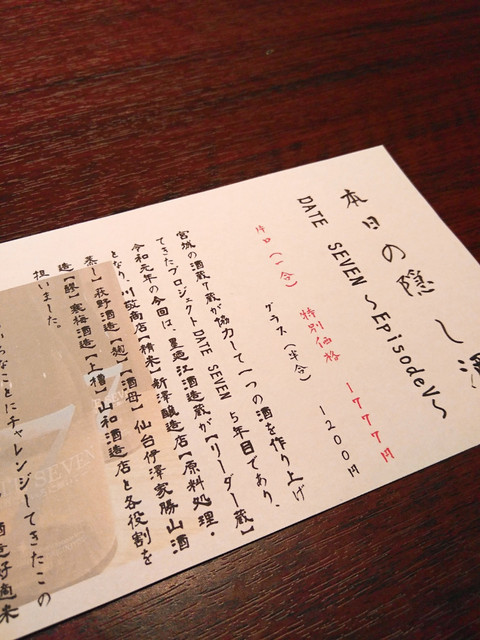 本日の隠し酒
DATE SEVEN ～EpisodeV～
片口（一合） 特別価格 1777円
グラス（半分） 1200円
宮城の酒蔵7蔵が協力して一つの酒を作り上げ
てきたプロジェクトDATE SEVEN 5年目であり、
令和元年の今回は、墨廼江酒造蔵が【リーダー蔵】
となり、川敬商店【精米】新澤醸造店【原料処理・
蒸し】萩野酒造【麹】【酒母】仙台伊澤家勝山酒
造【醪】寒梅酒造【上槽】山和酒造店と各役割を
担いました。
いろんなことにチャレンジしてきたこの
SEVEN